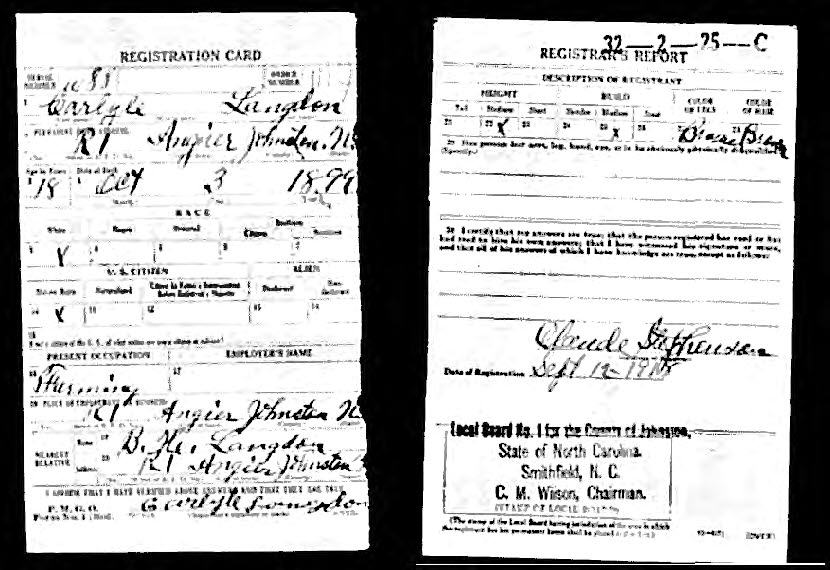 REGISTRATION CARD
SERIAL NUMBER 1188 ORDER NUMBER
Carlyle Langdon
R1 Angier Johnston, N
Age in Years Date of Birth
18 Oct 3 1899
RACE
White Negro Oriental Indian
Citizen
X
U. S. CITIZEN ALIEN
Native Born Naturalized Citizen by Father's Naturalization Before Registrant's Majority Declarant Non-declarant
10 X 11 12 13 14
15
PRESENT OCCUPATION EMPLOYER'S NAME
16 Farming 17
R1 Angier Johnston N
NEAREST RELATIVE
Name B. H. Langdon
Address R1 Angier Johnston
I AFFIRM THAT I HAVE VERIFIED ABOVE ANSWERS AND THAT THEY ARE TRUE
P. M. G. O.
Form No. 1 (Red) Carlyle Langdon
32—2—25—C
REGISTRAR'S REPORT
DESCRIPTION OF REGISTRANT
HEIGHT BUILD COLOR OF EYES COLOR OF HAIR
Tall Medium Short Slender Medium Stout
21 22 X 23 24 25 X 26
29 Has person lost arm, leg, hand, eye, or is he obviously physically disqualified?
(Specify.)
30 I certify that my answers are true; that the person registered has read or has
had read to him his own answers; that I have witnessed his signature or mark,
and that all of his answers of which I have knowledge are true, except as follows:
Claude Stephenson
Date of Registration Sept 12 1918
Local Board No. 1 for the County of Johnston,
State of North Carolina.
Smithfield, N. C.
C. M. Wilson, Chairman.
(STAMP OF LOCAL BOARD)
(The stamp of the Local Board having jurisdiction of the area in which
the registrant has his permanent home shall be placed in this box.)
(OVER)